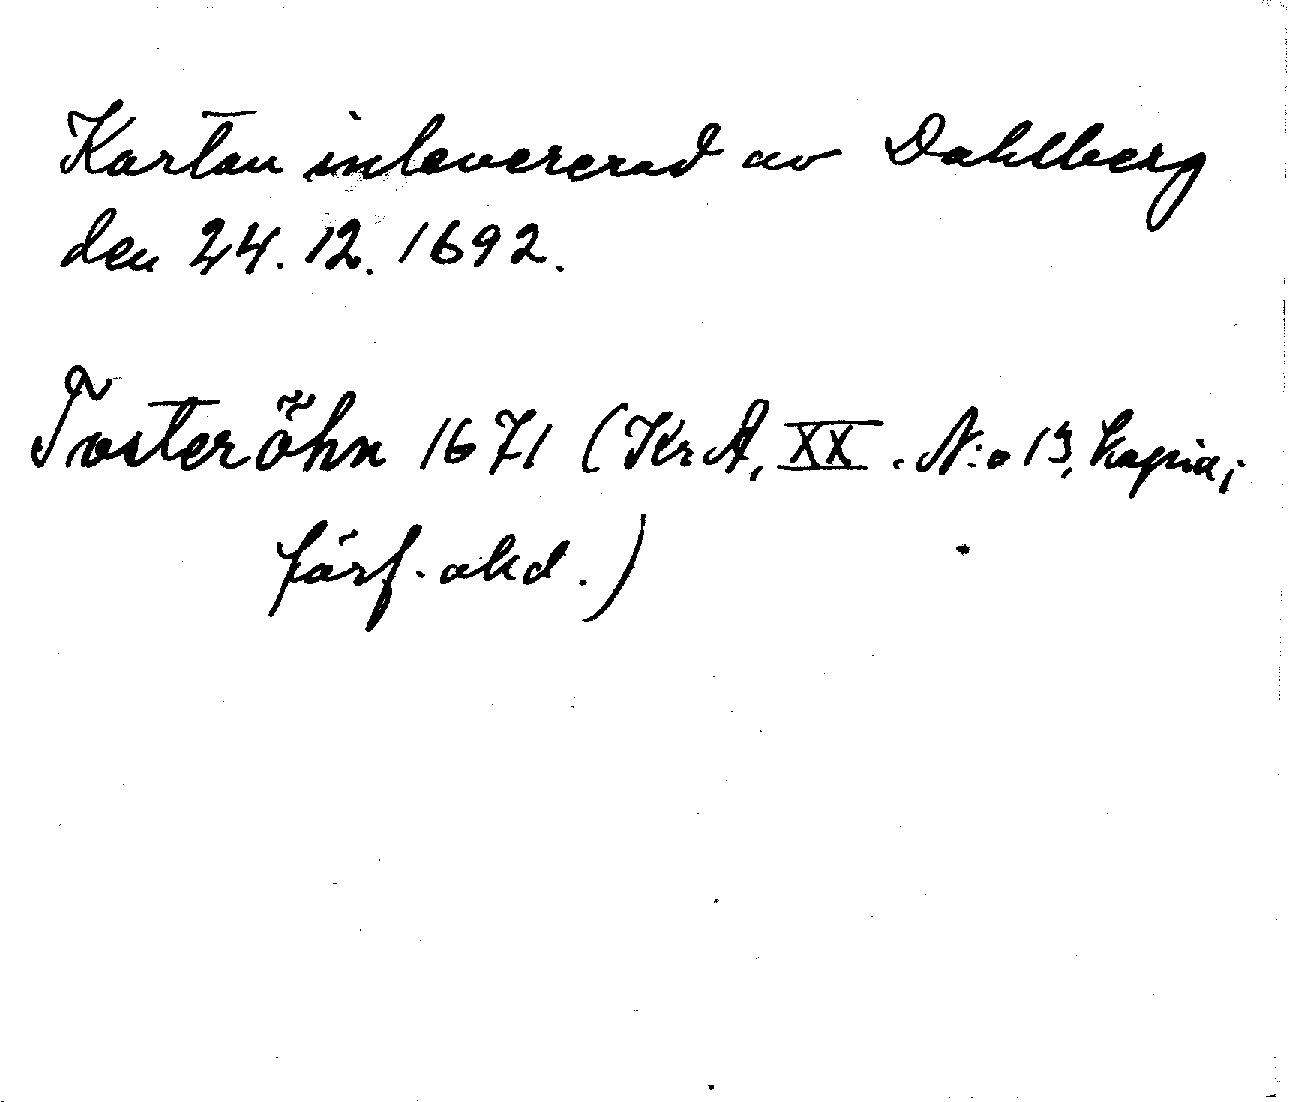 Kartan inlevererad av Dahlberg
den 24.12.1692.
Tosteröhn 1671 (KrA, XX. N:o 13, kopia;
förf. akd.)